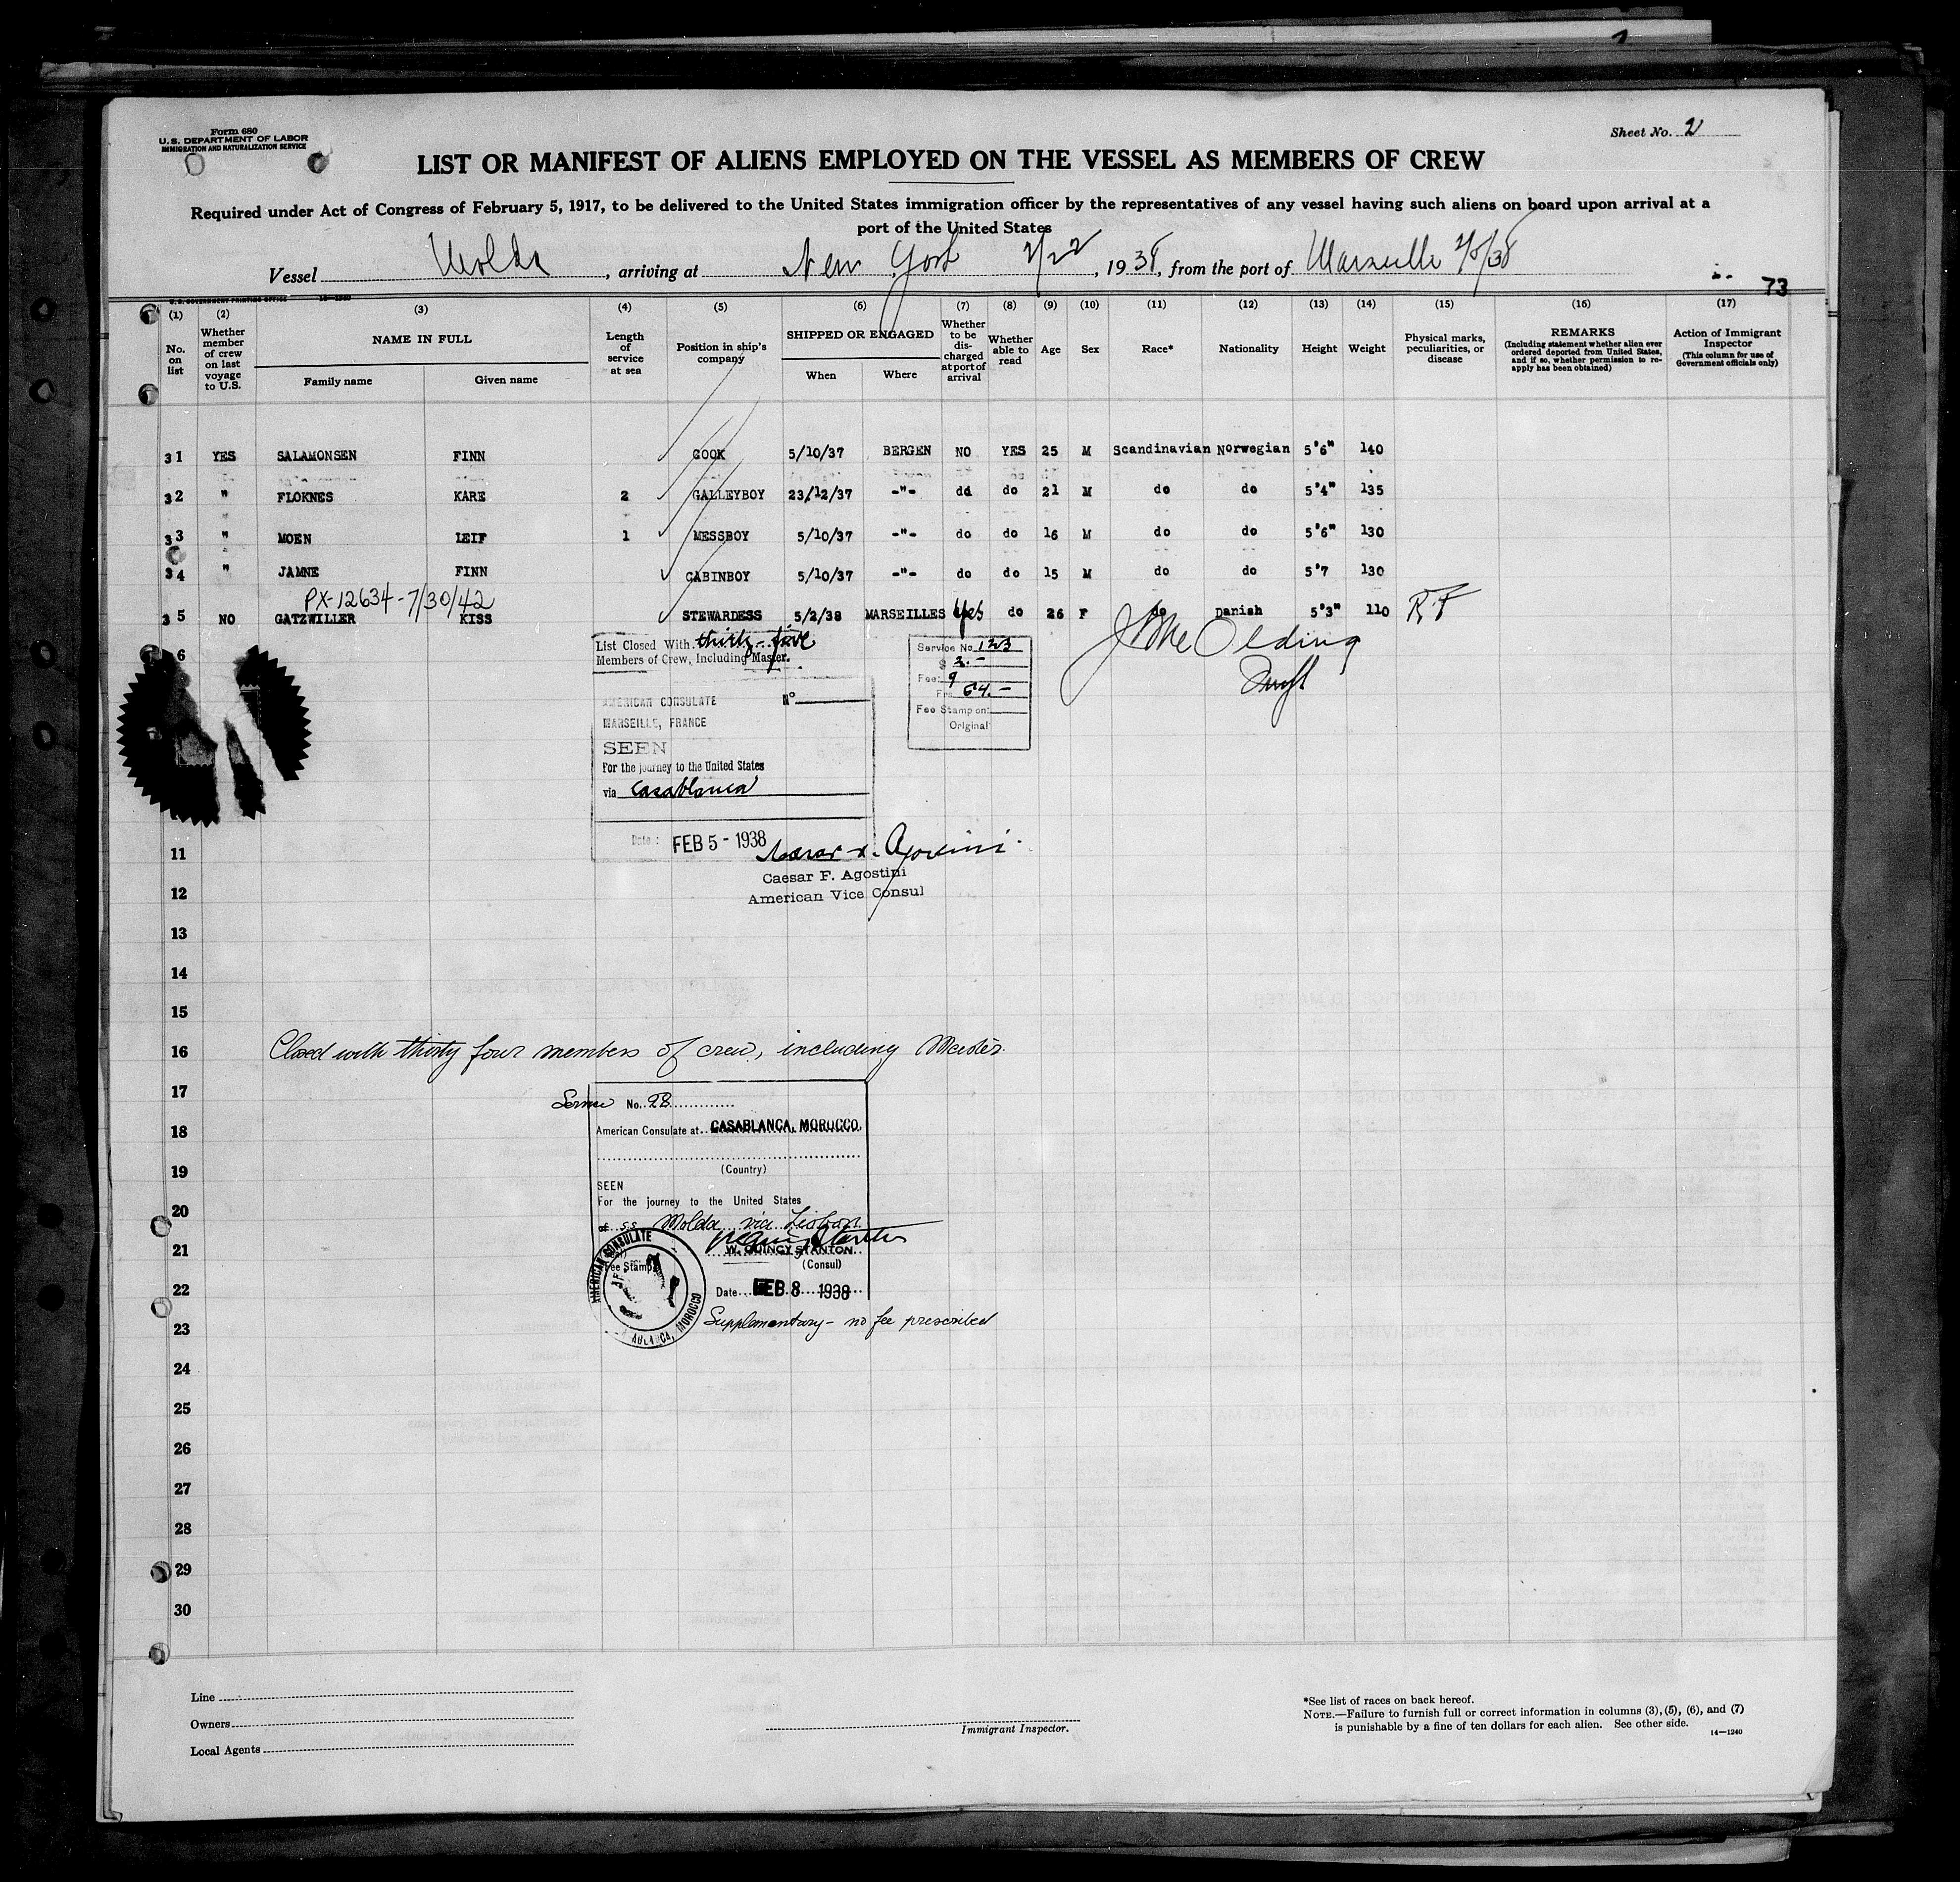 Form 680
U. S. DEPARTMENT OF LABOR
IMMIGRATION AND NATURALIZATION SERVICE
Sheet No. 2
LIST OR MANIFEST OF ALIENS EMPLOYED ON THE VESSEL AS MEMBERS OF CREW
Required under Act of Congress of February 5, 1917, to be delivered to the United States immigration officer by the representatives of any vessel having such aliens on board upon arrival at a
port of the United States
Vessel Molda, arriving at New York 2/22, 1938, from the port of Marseille 2/5/38
73
U. S. GOVERNMENT PRINTING OFFICE 14—1240
(1) (2) (3) (4) (5) (6) (7) (8) (9) (10) (11) (12) (13) (14) (15) (16) (17)
No. on list
Whether member of crew on last voyage to U.S.
NAME IN FULL
Family name Given name
Length of service at sea
Position in ship's company
SHIPPED OR ENGAGED
When Where
Whether to be discharged at port of arrival
Whether able to read
Age
Sex
Race*
Nationality
Height
Weight
Physical marks, peculiarities, or disease
REMARKS
(Including statement whether alien ever ordered deported from United States, and if so, whether permission to reapply has been obtained)
Action of Immigrant Inspector
(This column for use of Government officials only)
31 YES SALAMONSEN FINN COOK 5/10/37 BERGEN NO YES 25 M Scandinavian Norwegian 5'6" 140
32 " FLOKNES KARE 2 GALLEYBOY 23/12/37 -"- do do 21 M do do 5'4" 135
33 " MOEN LEIF 1 MESSBOY 5/10/37 -"- do do 16 M do do 5'6" 130
34 " JAMNE FINN CABINBOY 5/10/37 -"- do do 15 M do do 5'7 130
PX-12634-7/30/42
35 NO GATZWILLER KISS STEWARDESS 5/2/38 MARSEILLES Yes do 26 F do Danish 5'3" 110
List Closed With thirty-five
Members of Crew, Including Master.
Service No. 123
$ 2.-
Fee: 9
Frs 64.-
Fee Stamp on
Original
6
AMERICAN CONSULATE N°
MARSEILLE, FRANCE
SEEN
For the journey to the United States
via Casablanca
Date: FEB 5 - 1938
Caesar F. Agostini
American Vice Consul
11
12
13
14
15
16 Closed with thirty four members of crew, including Master.
17
Service No. 28
18
American Consulate at CASABLANCA, MOROCCO.
19
(Country)
SEEN
For the journey to the United States
20
of ss Molda via Lisbon
21
W. QUINCY STANTON
(Consul)
Fee Stamp
AMERICAN CONSULATE
22
Date FEB 8 1938
23 Supplementary - no fee prescribed
24
25
26
27
28
29
30
Line
Owners
Local Agents
Immigrant Inspector.
*See list of races on back hereof.
NOTE.—Failure to furnish full or correct information in columns (3), (5), (6), and (7)
is punishable by a fine of ten dollars for each alien. See other side.
14—1240